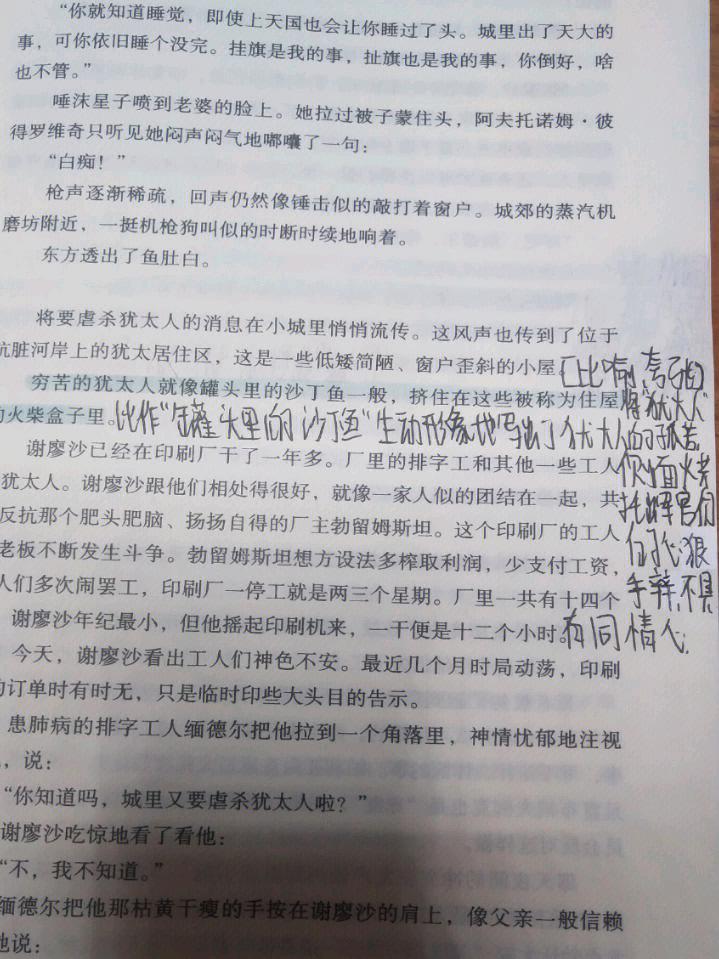 “你就知道睡觉，即使上天国也会让你睡过了头。城里出了天大的
事，可你依旧睡个没完。挂旗是我的事，扯旗也是我的事，你倒好，啥
也不管。”
唾沫星子喷到老婆的脸上。她拉过被子蒙住头，阿夫托诺姆·彼
得罗维奇只听见她闷声闷气地嘟囔了一句：
“白痴！”
枪声逐渐稀疏，回声仍然像锤击似的敲打着窗户。城郊的蒸汽机
磨坊附近，一挺机枪狗叫似的时断时续地响着。
东方透出了鱼肚白。
将要虐杀犹太人的消息在小城里悄悄流传。这风声也传到了位于
肮脏河岸上的犹太居住区，这是一些低矮简陋、窗户歪斜的小屋。
穷苦的犹太人就像罐头里的沙丁鱼一般，挤住在这些被称为住屋
的火柴盒子里。
谢廖沙已经在印刷厂干了一年多。厂里的排字工和其他一些工人
犹太人。谢廖沙跟他们相处得很好，就像一家人似的团结在一起，共
反抗那个肥头肥脑、扬扬自得的厂主勃留姆斯坦。这个印刷厂的工人
老板不断发生斗争。勃留姆斯坦想方设法多榨取利润，少支付工资，
人们多次闹罢工，印刷厂一停工就是两三个星期。厂里一共有十四个
谢廖沙年纪最小，但他摇起印刷机来，一干便是十二个小时。
今天，谢廖沙看出工人们神色不安。最近几个月时局动荡，印刷
的订单时有时无，只是临时印些大头目的告示。
患肺病的排字工人缅德尔把他拉到一个角落里，神情忧郁地注视
，说：
“你知道吗，城里又要虐杀犹太人啦？”
谢廖沙吃惊地看了看他：
“不，我不知道。”
缅德尔把他那枯黄干瘦的手按在谢廖沙的肩上，像父亲一般信赖
地说：
[比喻、夸张]
将“犹太人”
比作“罐头里的沙丁鱼”生动形象地写出了犹太人的孤苦
侧面烘
托
们
狠
手辣，不具
有同情心